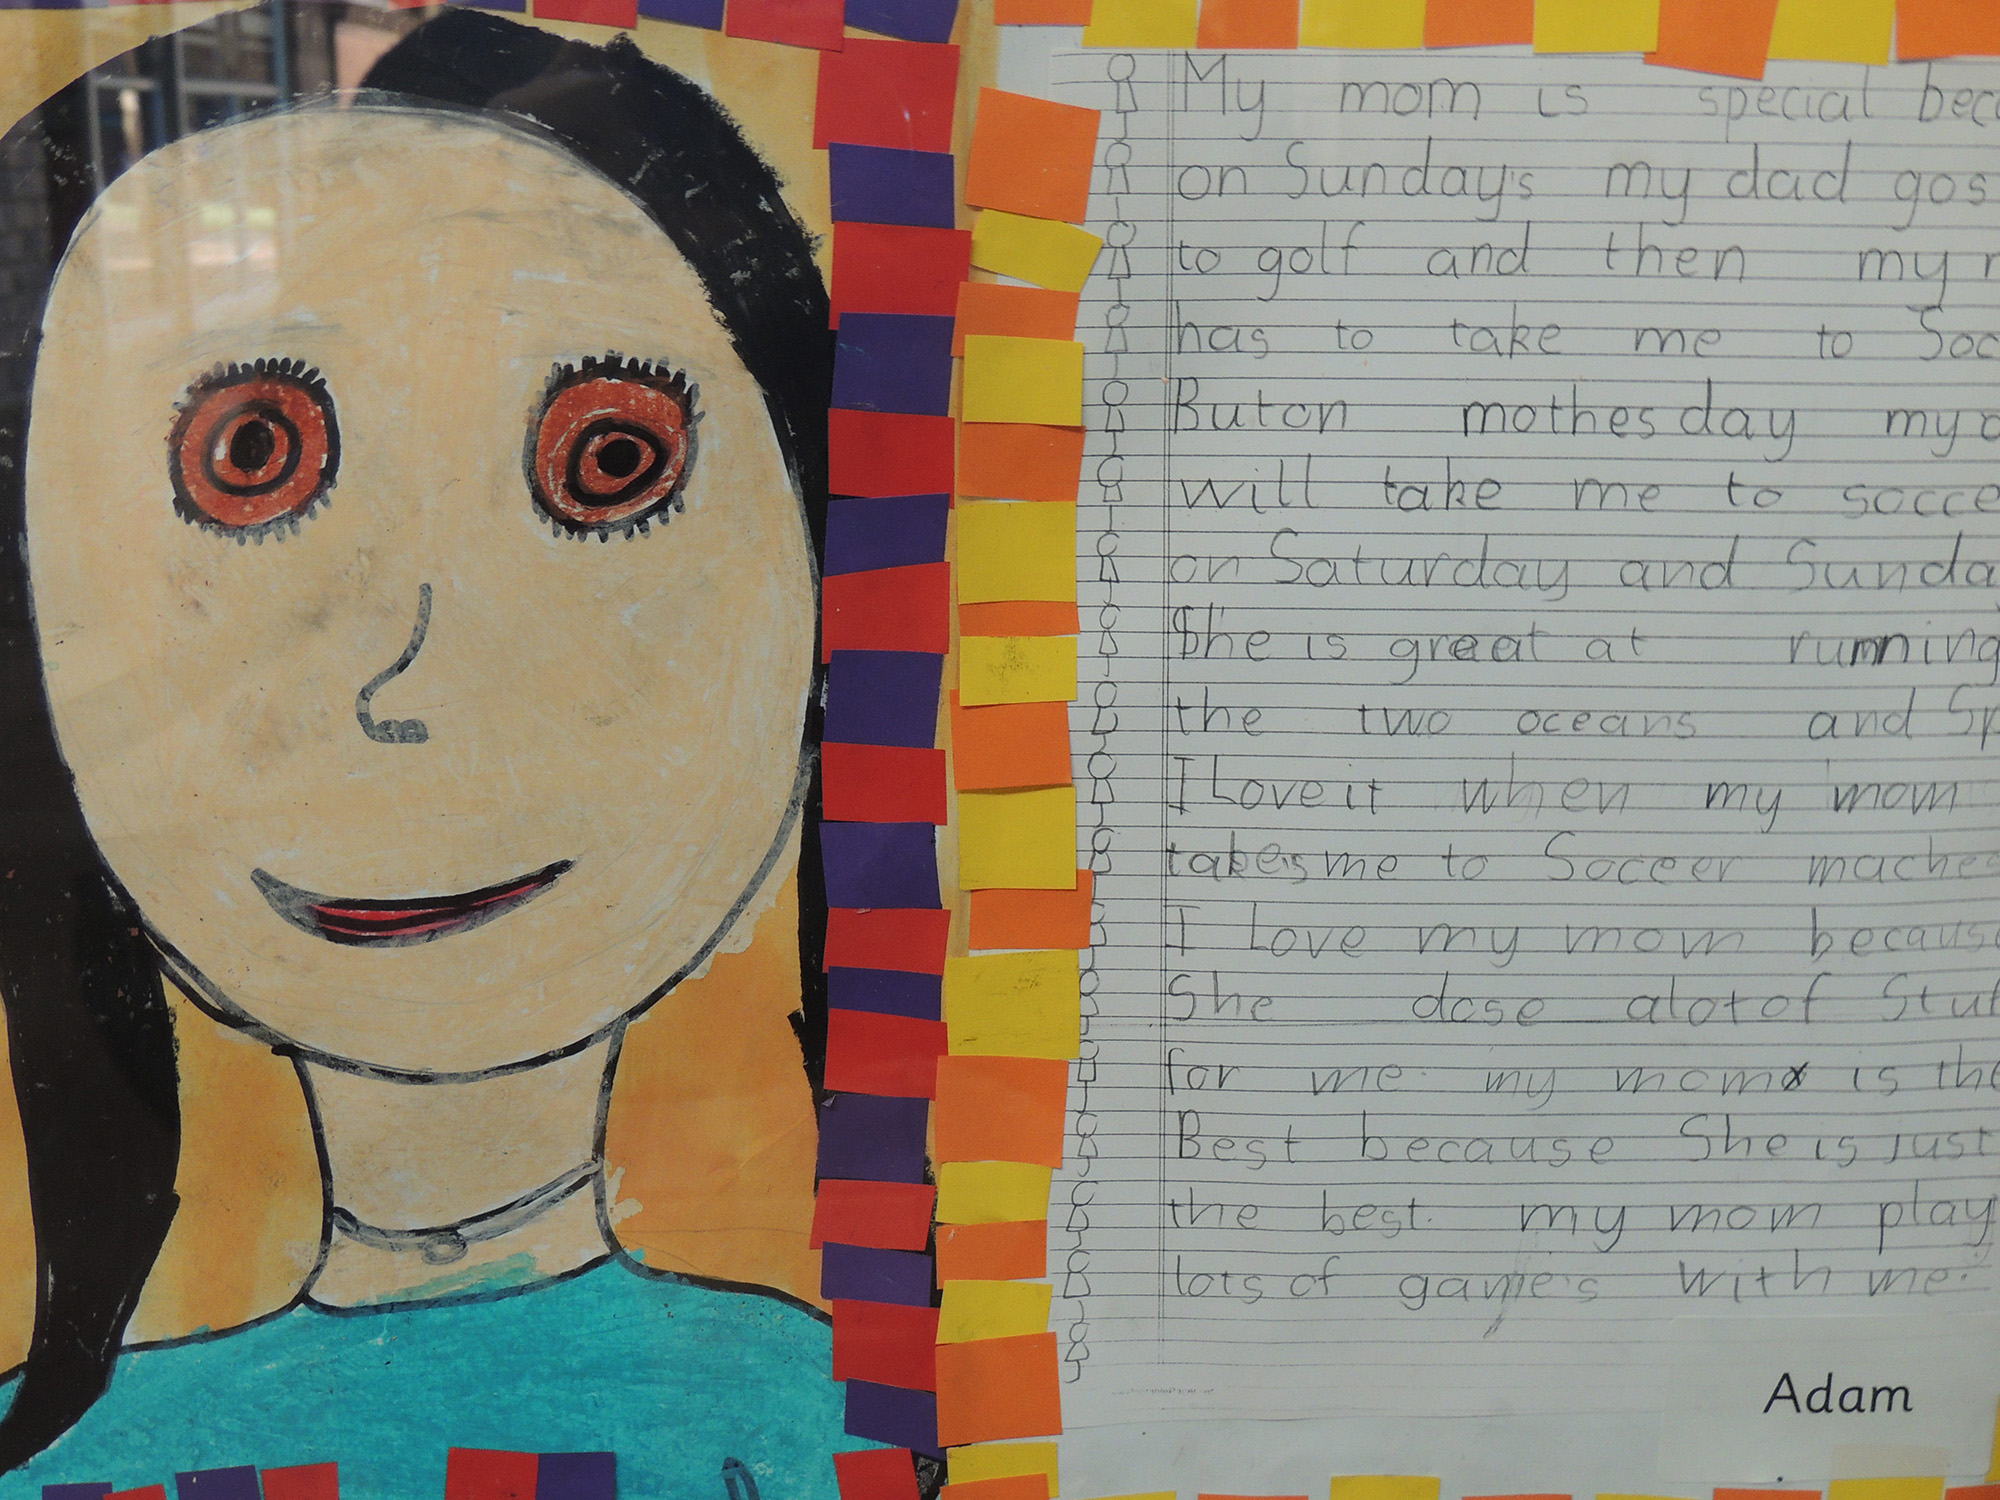 My mom is special bec
on Sunday's my dad gos
to golf and then my
has to take me to Soc
Buton mothes day my
will take me to socce
on Saturday and Sunda
She is great at running
the two oceans and Sp
I Love it when my mom
takes me to Soccer mache
I Love my mom becaus
She dose alot of Stuf
for me. my mom is the
Best because She is just
the best. my mom play
lots of games with me.
Adam